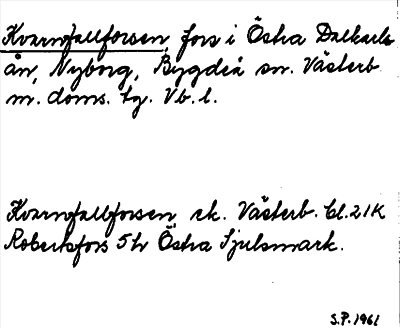 Kvarnfallforsen, fors i Östra Dalkarls
ån, Nyborg, Bygdeå sn. Västerb.
m. doms. tg. Vb. l.
Kvarnfallforsen ek. Västerb. bl. 21K
Robertsfors 5h Östra Sjulsmark.
S.P. 1961